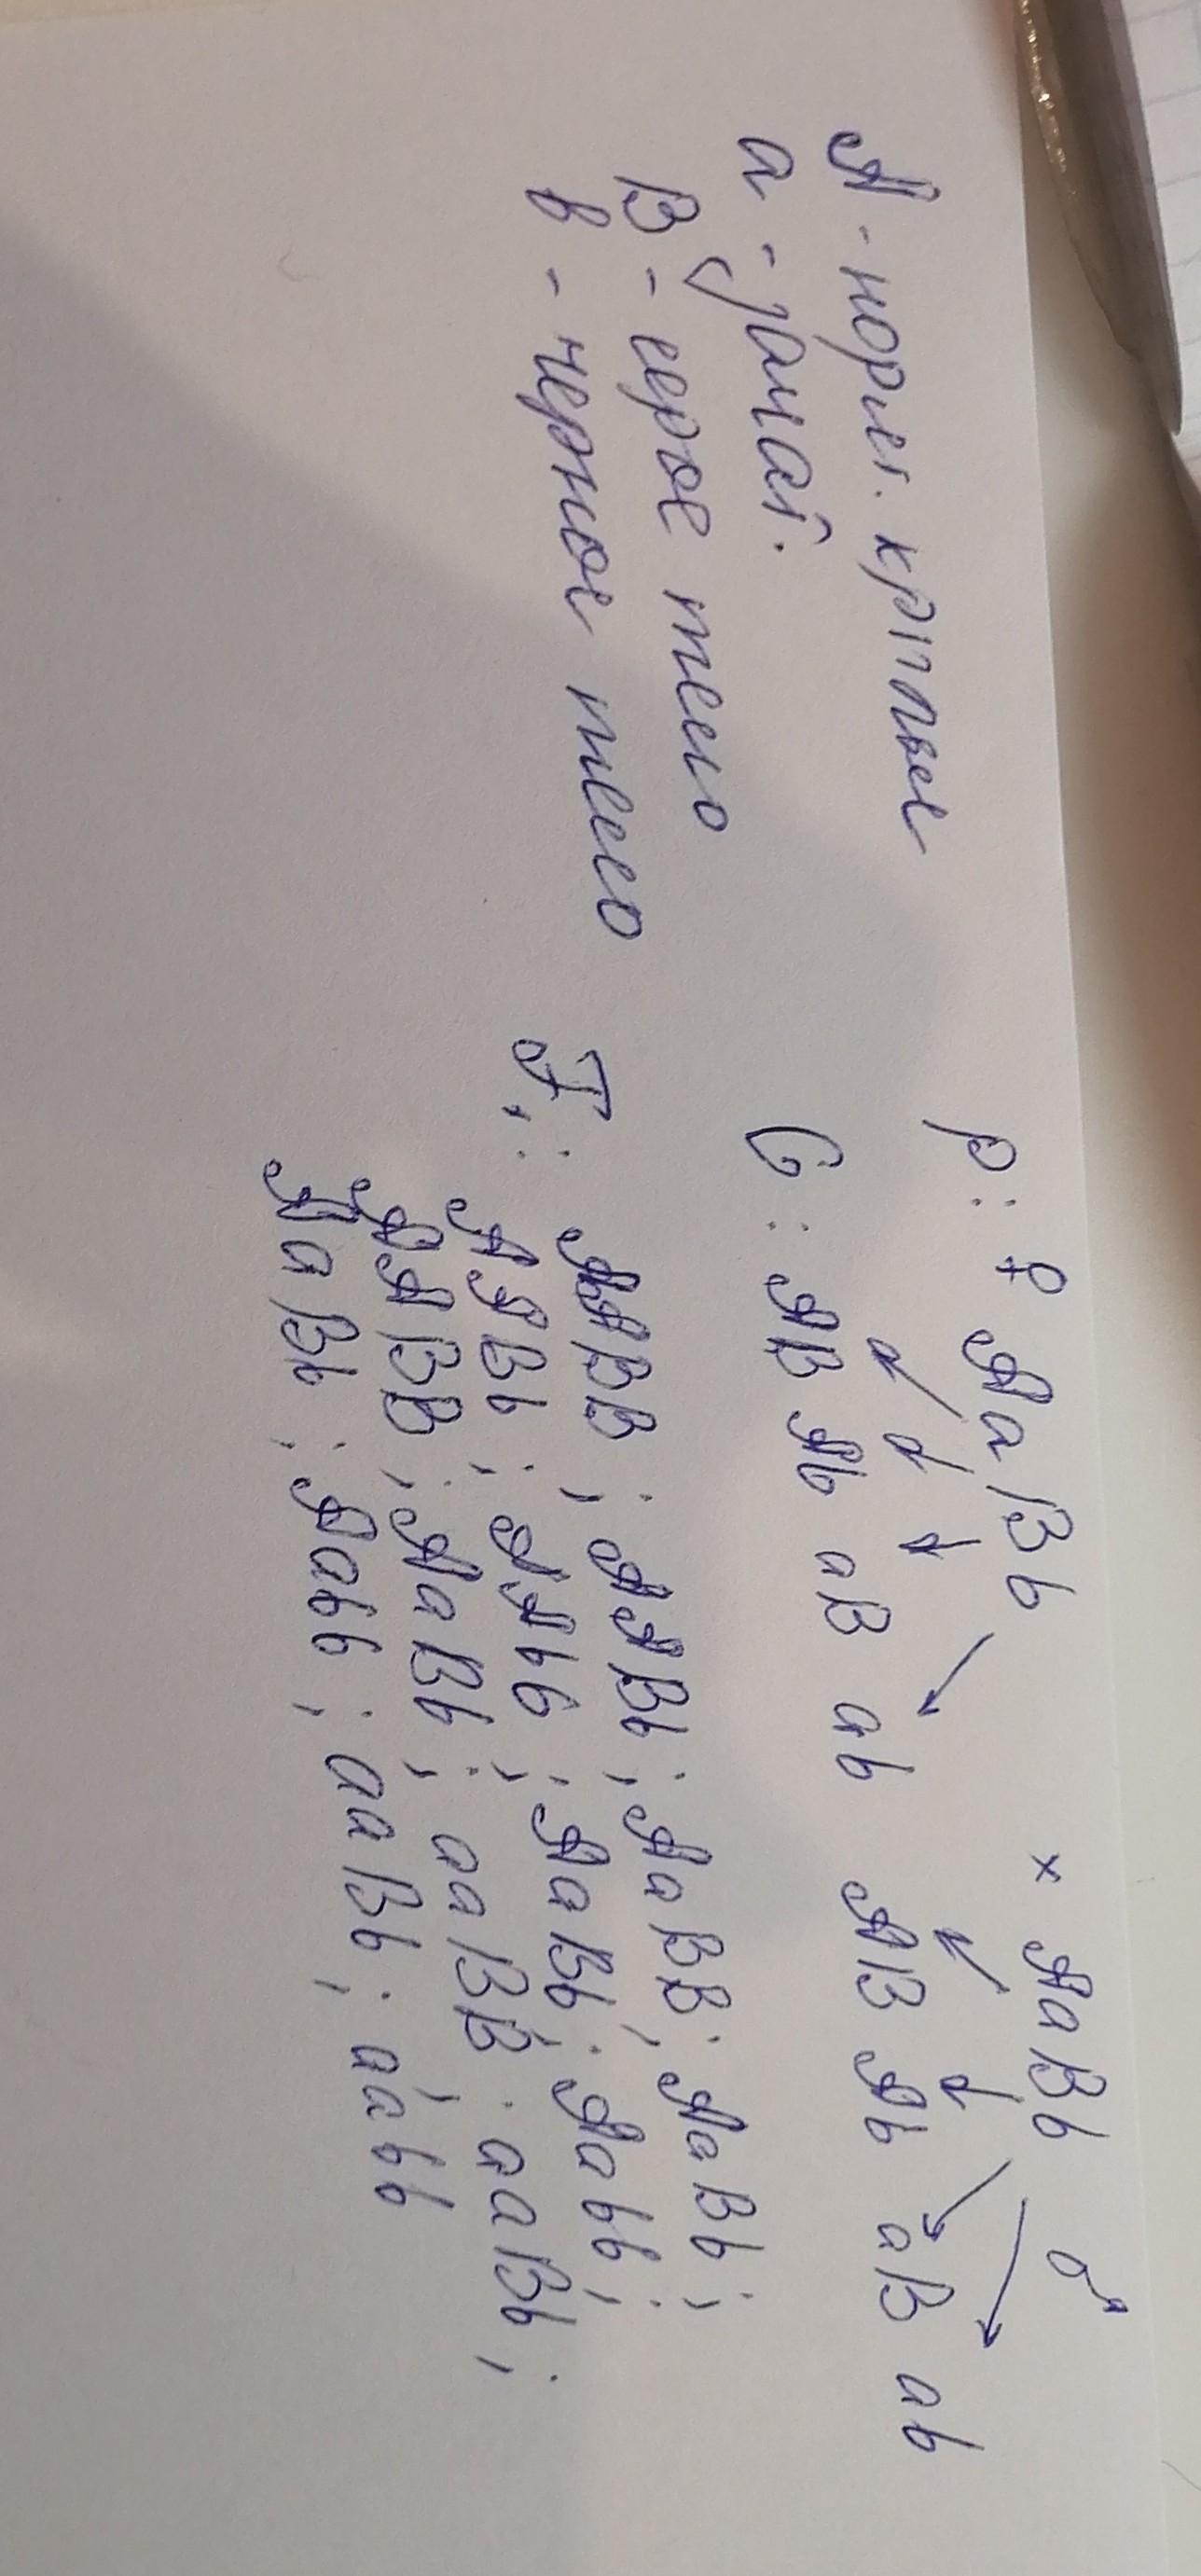 A - норм. крылье
a - зачат.
B - серое тело
в - черное тело
P: ♀ AaBb × AaBb ♂
G: AB Ab aB ab AB Ab aB ab
F₁: AABB; AABb; AaBB; AaBb;
AABb; AAbb; AaBb; Aabb;
AABB; AaBb; aaBB; aaBb;
AaBb; Aabb; aaBb; aabb